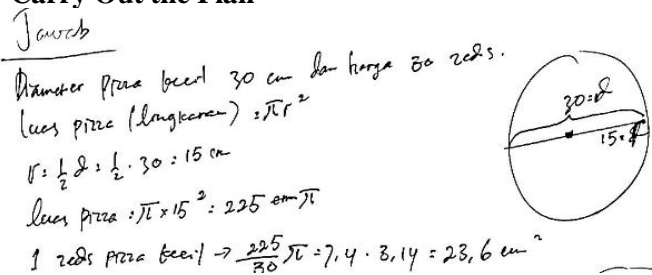 Carry Out the Plan
Jawab
Diameter pizza kecil 30 cm dan harga 30 zeds.
luas pizza (lingkaran) = πr²
30 = d
15 = r
r = ½ d = ½ . 30 = 15 cm
luas pizza = π x 15² = 225 π
1 zeds pizza kecil → 225/30 π = 7,4 . 3,14 = 23,6 cm²